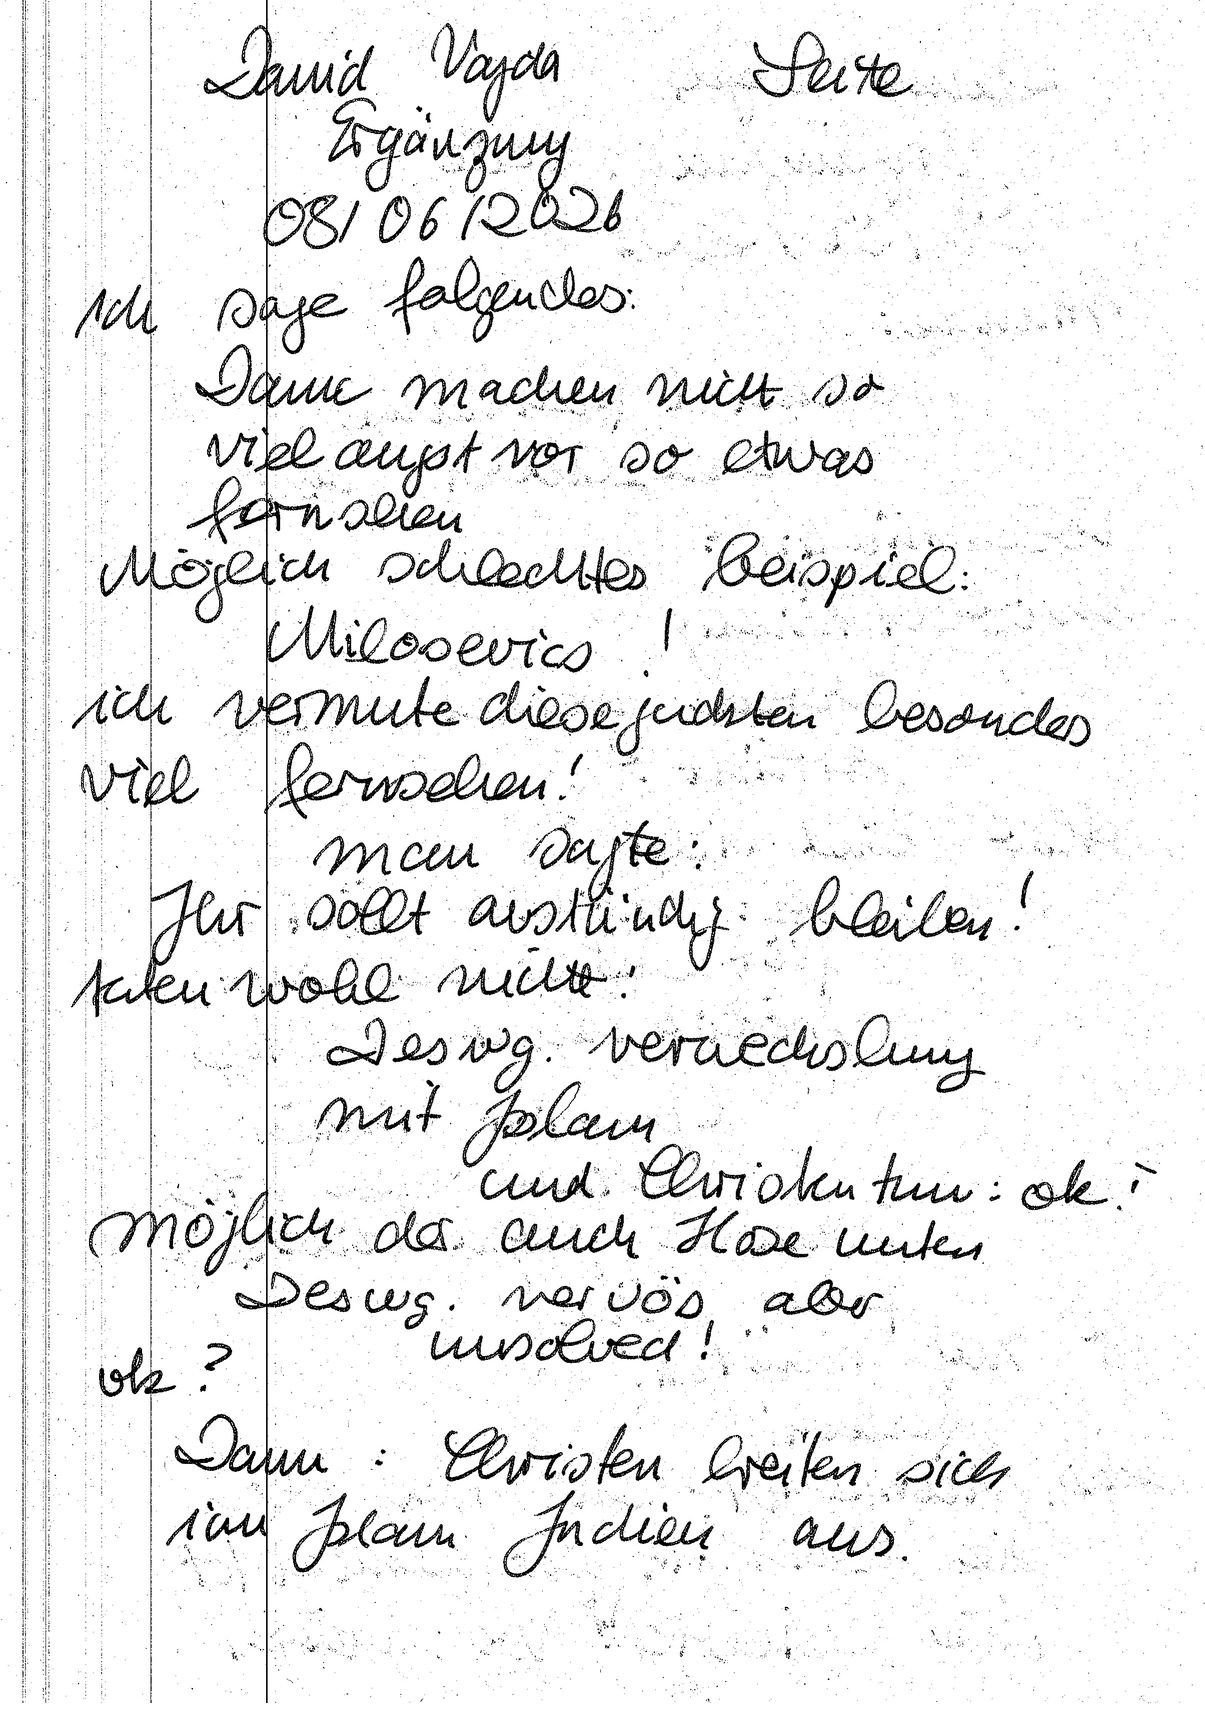 David Vajda Seite
Ergänzung
08/06/2026
ich sage folgendes:
Dann machen nicht so
viel angst vor so etwas
fernsehen
Möglich schlechtes beispiel:
Milosevics !
ich vermute diese besondes
viel fernsehen!
man sagte:
Ihr sollt anständig bleiben!
taten wohl nicht!
Deswg. verwechslung
mit Islam
und Christentum: ok!
Möglich das auch Hose unten
Deswg. nervös aber
unsolved!
ok ?
Dann : Christen breiten sich
im Islam Indien aus.